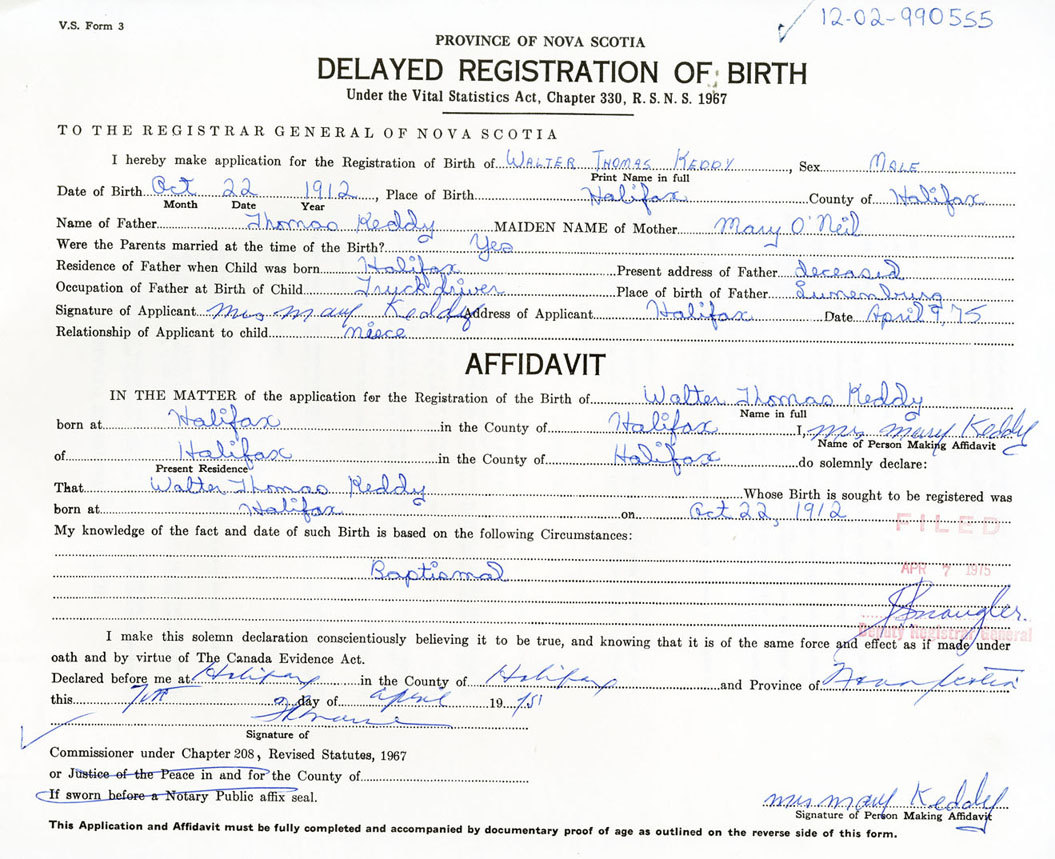 V.S. Form 3
12-02-990555
PROVINCE OF NOVA SCOTIA
DELAYED REGISTRATION OF BIRTH
Under the Vital Statistics Act, Chapter 330, R. S. N. S. 1967
TO THE REGISTRAR GENERAL OF NOVA SCOTIA
I hereby make application for the Registration of Birth of WALTER THOMAS KEDDY, Sex MALE
Print Name in full
Date of Birth Oct 22 1912, Place of Birth Halifax County of Halifax
Month Date Year
Name of Father Thomas Keddy MAIDEN NAME of Mother Mary O'Neil
Were the Parents married at the time of the Birth? Yes
Residence of Father when Child was born Halifax Present address of Father deceased
Occupation of Father at Birth of Child Truck driver Place of birth of Father Lunenburg
Signature of Applicant Mrs Mary Keddy Address of Applicant Halifax Date April 9, 75
Relationship of Applicant to child niece
AFFIDAVIT
IN THE MATTER of the application for the Registration of the Birth of Walter Thomas Keddy
Name in full
born at Halifax in the County of Halifax I, Mrs Mary Keddy
Name of Person Making Affidavit
of Halifax in the County of Halifax do solemnly declare:
Present Residence
That Walter Thomas Keddy Whose Birth is sought to be registered was
born at Halifax on Oct 22, 1912
FILED
My knowledge of the fact and date of such Birth is based on the following Circumstances:
Baptismal
APR 7 1975
Deputy Registrar General
I make this solemn declaration conscientiously believing it to be true, and knowing that it is of the same force and effect as if made under
oath and by virtue of The Canada Evidence Act.
Declared before me at Halifax in the County of Halifax and Province of Nova Scotia
this 7th day of April 19 75
Signature of
Commissioner under Chapter 208, Revised Statutes, 1967
or Justice of the Peace in and for the County of
If sworn before a Notary Public affix seal.
Mrs Mary Keddy
Signature of Person Making Affidavit
This Application and Affidavit must be fully completed and accompanied by documentary proof of age as outlined on the reverse side of this form.